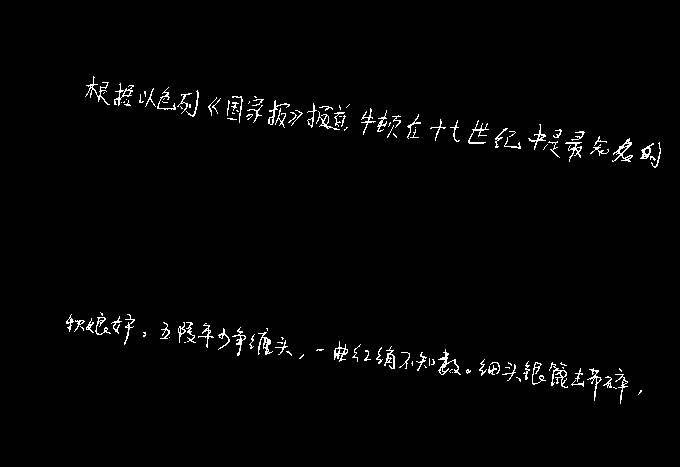 根据以色列《国家报》报道，牛顿在十七世纪中是最知名的
秋娘妒。五陵年少争缠头，一曲红绡不知数。细头银篦击节碎，